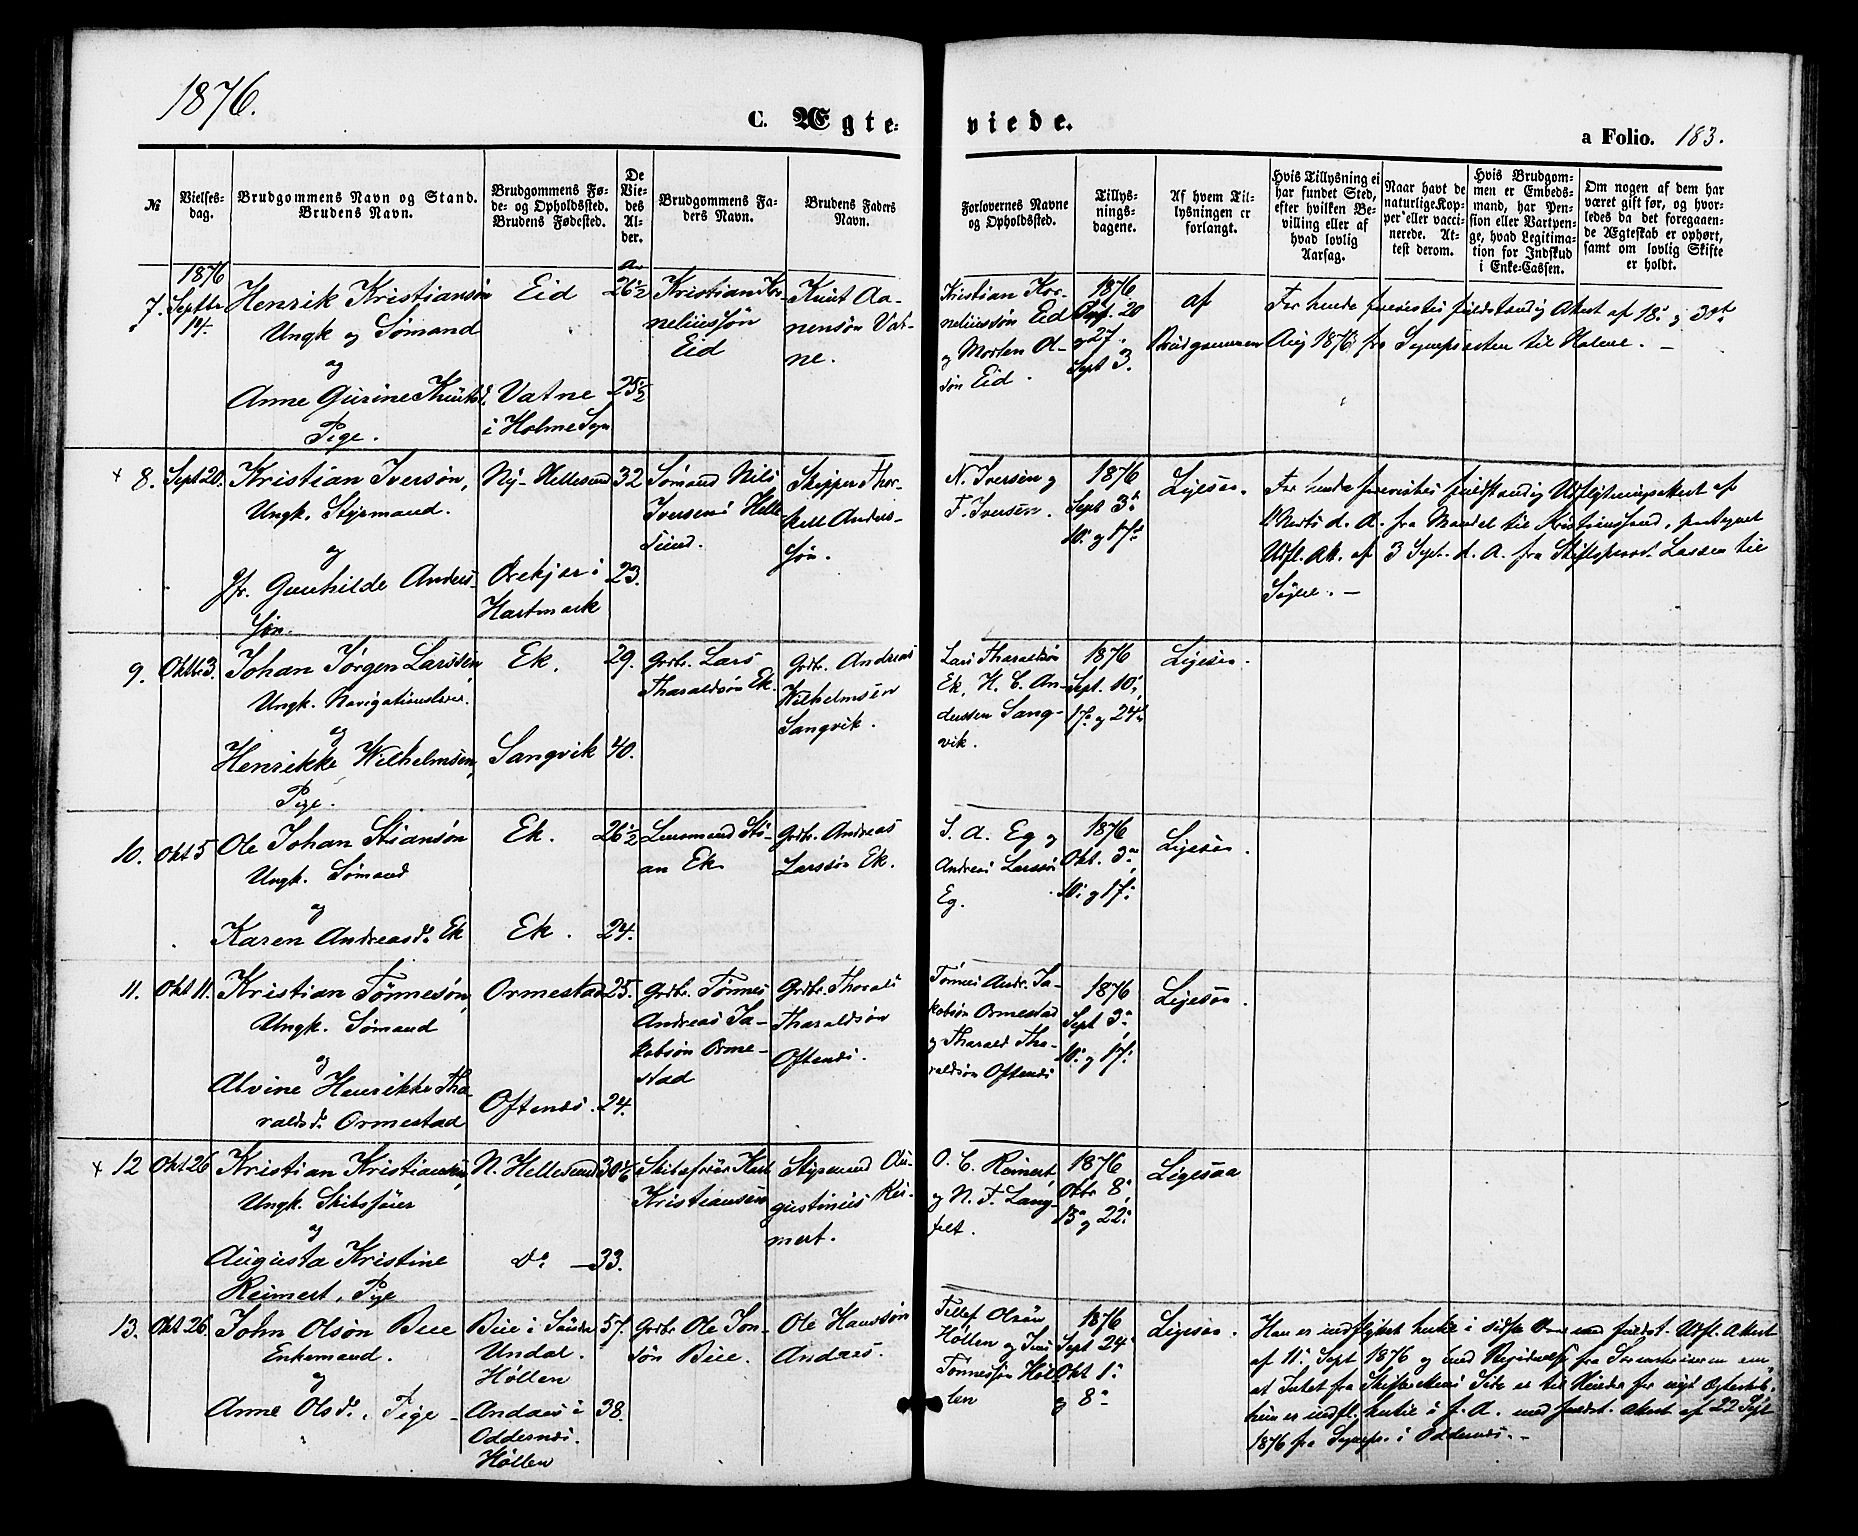 1876.
C. Ægte-
viede.
a Folio. 183.
№
Vielses-
dag.
Brudgommens Navn og Stand.
Brudens Navn.
Brudgommens Fø-
de- og Opholdssted.
Brudens Fødested.
De
Vie-
des
Al-
der.
Brudgommens Fa-
ders Navn.
Brudens Faders
Navn.
Forlovernes Navne
og Opholdssted.
Tillys-
nings-
dagene.
Af hvem Til-
lysningen er
forlangt.
Hvis Tillysning ei
har fundet Sted,
efter hvilken Be-
villing eller af
hvad lovlig
Aarsag.
Naar havt de
naturlige Kop-
per eller vacci-
nerede. At-
test derom.
Hvis Brudgom-
men er Embeds-
mand, har Pen-
sion eller Vartpen-
ge, hvad Legitima-
tion for Indskud
i Enke-Cassen.
Om nogen af dem har
været gift før, og hvor-
ledes da det foregaaen-
de Ægteskab er ophørt,
samt om lovlig Skifte
er holdt.
7.
1876
Septbr
14.
Henrik Kristiansøn
Ungk og Sømand
og
Anne Gurine Knutsd.
Pige.
Eid
Vatne
i Holme Sogn
26½
25½
Kristian Kor-
neliussøn
Eid
Knut Aa-
nensøn Vat-
ne.
Kristian Kor-
neliussøn Eid
og Morten Ol-
søn Eid.
1876
20
og 27.
Sept 3.
af
Brudgommen
For hende forevistes fuldstændig Attest af 18. og 31te
Aug 1876 fra Sognepresten til Holme. —
+ 8.
Sept 20.
Kristian Iversøn,
Ungk. Styrmand.
og
Jfr. Gunhilde Anders-
søn.
Ny-Hellesund
Ørekjær i
Hartmark
32
23.
Sømand Nils
Iversen i Helle-
sund.
Skipper Thor-
kell Anders-
søn.
N. Iversøn og
F. Iversøn.
1876
Sept 3.
10. og 17.
Ligesaa.
For hende forevistes fuldstændig Udflytningsattest af
d. A. fra Mandal til Kristianssand, paategnet
Udfl. Att. af 3 Sept. d. A. fra Stiftsprovst Lassen til
Søgne. —
9.
Oktbr 3.
Johan Jørgen Larssen,
Ungk. Navigationslærer.
og
Henrikke Wilhelmsen,
Pige.
Ek.
Sangvik
29.
40.
Grdbr. Lars
Tharaldsøn Ek.
Grdbr. Andreas
Wilhelmsen
Sangvik.
Lars Tharaldsøn
Ek, H. C. An-
derssen Sang-
vik.
1876
Sept. 10.
17. og 24.
Ligesaa.
10.
Okt 5
Ole Johan Stiansøn
Ungk. Sømand
og
Karen Andreasd. Ek
Ek.
Ek.
26½
24.
Lensmand Sti-
an Ek
Grdbr. Andreas
Larssøn Ek.
S. A. Eg og
Andreas Larssøn
Eg.
1876
Okt. 3.
10. og 17.
Ligesaa.
11.
Okt 11.
Kristian Tønnesøn,
Ungk. Sømand
og
Alvine Henrikke Tha-
raldsd. Ormestad
Ormestad
Oftenæs.
25.
24.
Grdbr. Tønnes
Andreas Ja-
kobsøn Orme-
stad
Grdbr. Tharald
Tharaldsøn
Oftenæs.
Tønnes Andr. Ja-
kobsøn Ormestad
og Tharald Tha-
raldsøn Oftenæs
1876
Sept 3.
10. og 17.
Ligesaa.
+ 12
Okt 26
Kristian Kristiansen,
Ungk. Skibsfører
og
Augusta Kristine
Reimert, Pige
N. Hellesund
do —
30½
33.
Skibsfører Karl
Kristiansen
Styrmand Au-
gustinius Rei-
mert.
O. C. Reimert,
og N. F. Lang-
felt.
1876
Oktbr 8.
15. og 22.
Ligesaa
13.
Okt 26.
John Olsøn Bue
Enkemand.
og
Anne Olsd., Pige
Bue i Søndre
Undal.
Høllen
Andaas i
Oddernæs.
Høllen
57.
38.
Grdbr Ole Jon-
søn Bue.
Ole Hanssøn
Andaas.
Tellef Olsøn
Høllen og Jens
Tønnessøn Høl-
len
1876
Sept 24.
Okt 1.
og 8.
Ligesaa.
Han er indflyttet hertil i sidste med fuldst. Udfl. Attest
af 11. Sept 1876 og med fra om
at Intet fra Skifterettens Side er til Hinder for nyt Ægteskab.
hun er indfl. hertil i f. A. med fuldst. Attest af 22 Sept
1876 fra Sognepr. i Oddernæs. —